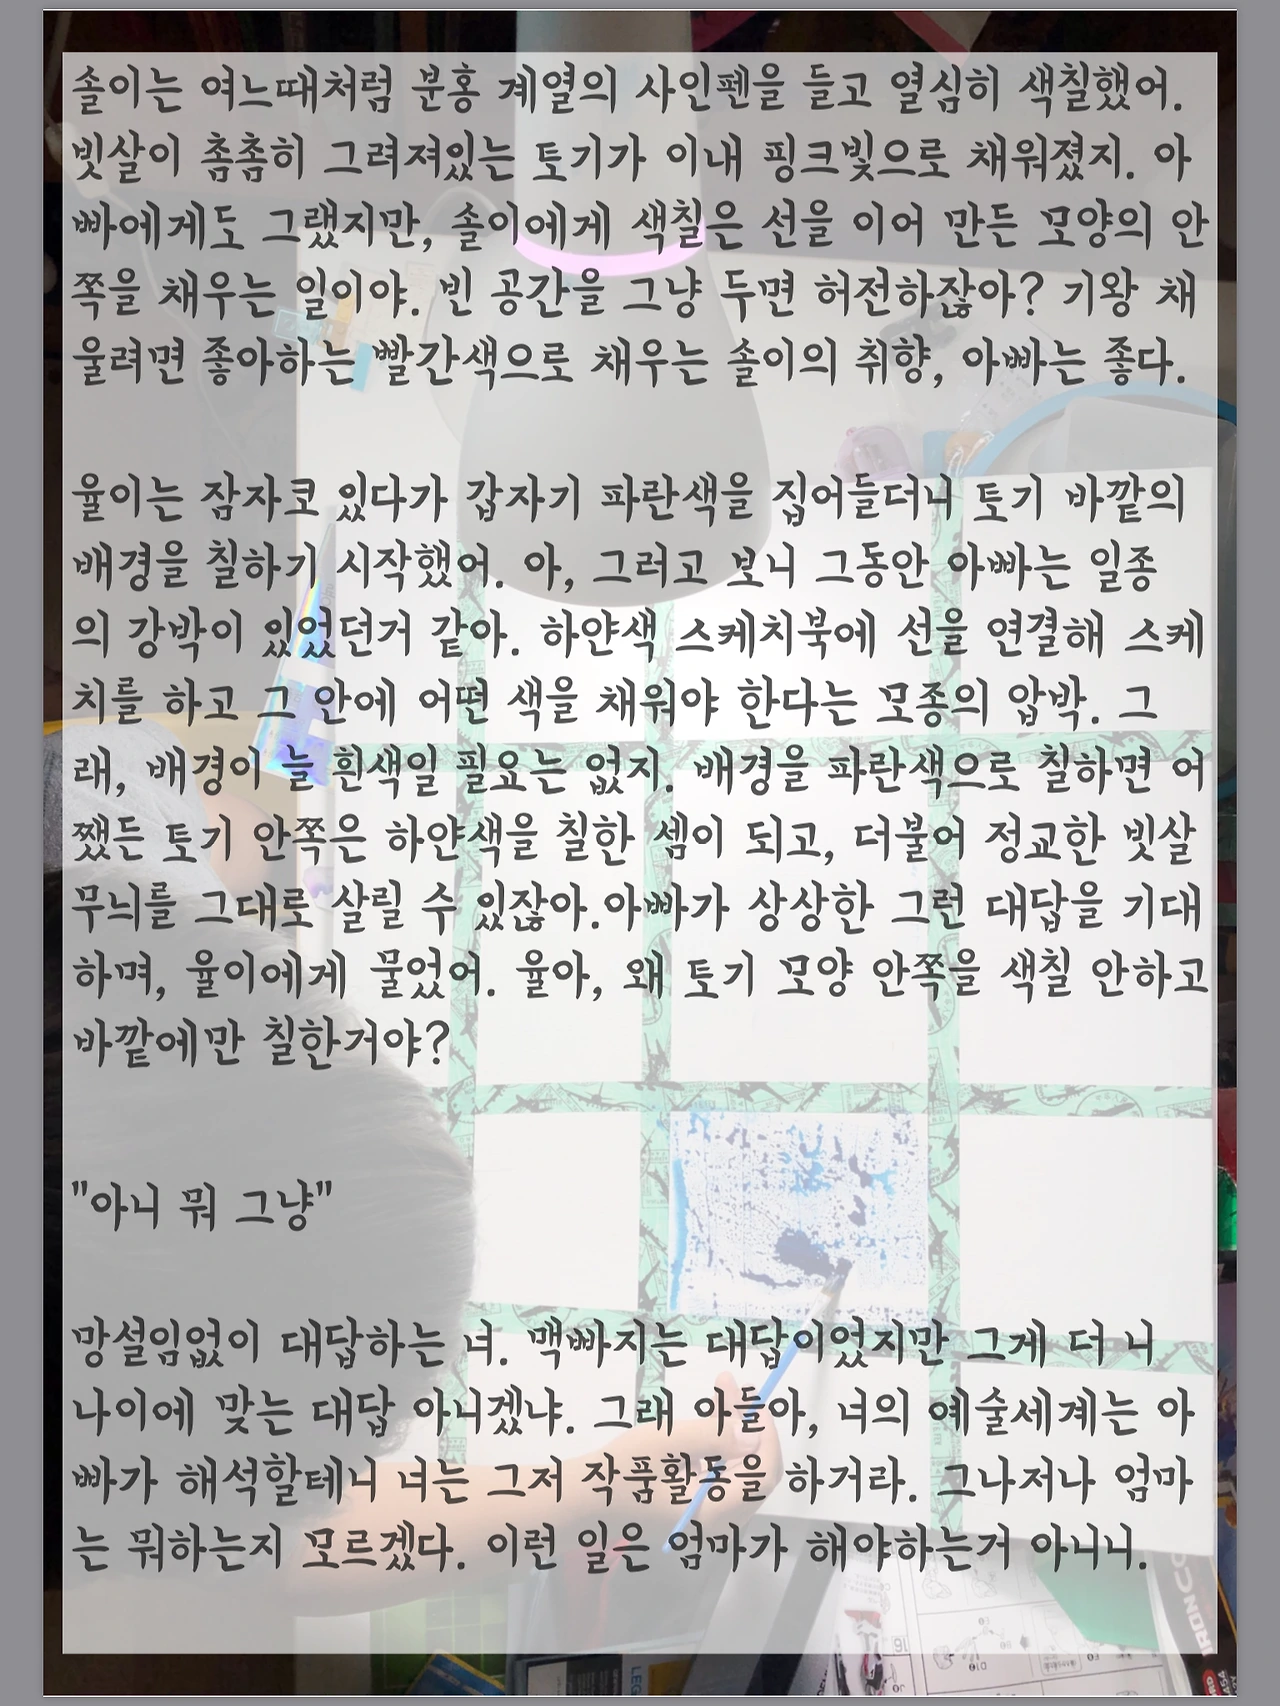 솔이는 여느때처럼 분홍 계열의 사인펜을 들고 열심히 색칠했어.
빗살이 촘촘히 그려져있는 토기가 이내 핑크빛으로 채워졌지. 아
빠에게도 그랬지만, 솔이에게 색칠은 선을 이어 만든 모양의 안
쪽을 채우는 일이야. 빈 공간을 그냥 두면 허전하잖아? 기왕 채
울려면 좋아하는 빨간색으로 채우는 솔이의 취향, 아빠는 좋다.
율이는 잠자코 있다가 갑자기 파란색을 집어들더니 토기 바깥의
배경을 칠하기 시작했어. 아, 그러고 보니 그동안 아빠는 일종
의 강박이 있었던거 같아. 하얀색 스케치북에 선을 연결해 스케
치를 하고 그 안에 어떤 색을 채워야 한다는 모종의 압박. 그
래, 배경이 늘 흰색일 필요는 없지. 배경을 파란색으로 칠하면 어
쨌든 토기 안쪽은 하얀색을 칠한 셈이 되고, 더불어 정교한 빗살
무늬를 그대로 살릴 수 있잖아.아빠가 상상한 그런 대답을 기대
하며, 율이에게 물었어. 율아, 왜 토기 모양 안쪽을 색칠 안하고
바깥에만 칠한거야?
"아니 뭐 그냥"
망설임없이 대답하는 너. 맥빠지는 대답이었지만 그게 더 니
나이에 맞는 대답 아니겠냐. 그래 아들아, 너의 예술세계는 아
빠가 해석할테니 너는 그저 작품활동을 하거라. 그나저나 엄마
는 뭐하는지 모르겠다. 이런 일은 엄마가 해야하는거 아니니.